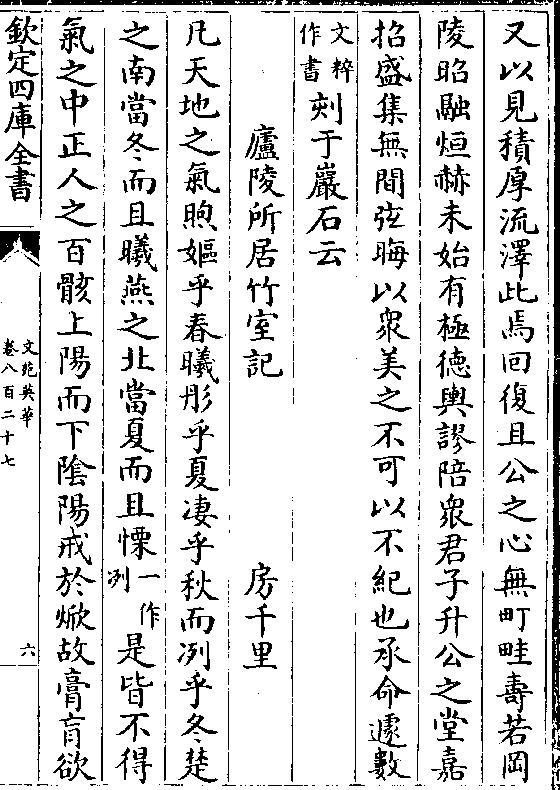 又以見積厚流澤此焉回復且公之心無町畦壽若岡
陵昭融烜赫未始有極德輿謬陪衆君子升公之堂嘉
招盛集無間弦晦以衆美之不可以不紀也承命遽數
文粹作書刻于巖石云
廬陵所居竹室記 房千里
凡天地之氣煦嫗乎春曦彤乎夏凄乎秋而冽乎冬楚
之南當冬而且曦燕之北當夏而且慄一作冽是皆不得
氣之中正人之百骸上陽而下陰陽戒於焮故膏肓欲
欽定四庫全書
文苑英華
卷八百二十七
六